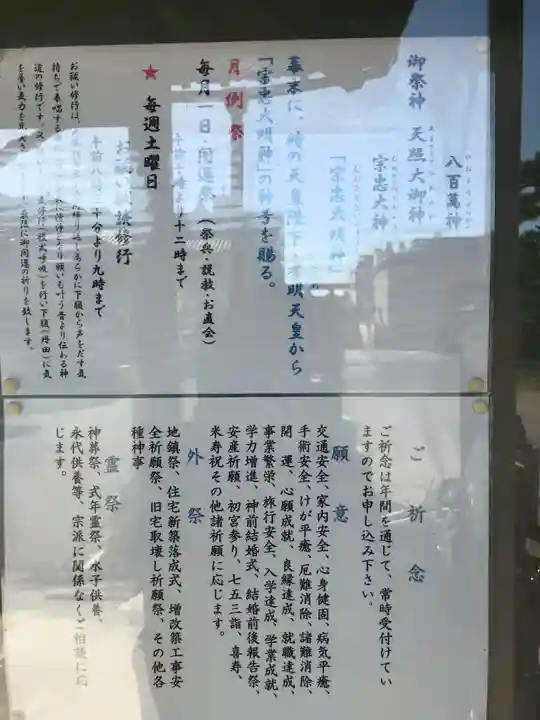 御祭神 天照大御神
八百萬神
宗忠大神
「宗忠大明神」
幕末に、時の天皇陛下・孝明天皇から
「宗忠大明神」の神号を賜る。
月例祭
毎月一日・開運祭(祭典・説教・お直会)
午前十時より十二時まで
★ 毎週土曜日
修行
午前八時三十分より九時まで
お祓い修行は、
ご祈念
ご祈念は年間を通じて、常時受付けてい
ますのでお申し込み下さい。
願意
交通安全、家内安全、心身健固、病気平癒、
手術安全、けが平癒、厄難消除、諸難消除、
開 運、心願成就、良縁達成、就職達成、
事業繁栄、旅行安全、入学達成、学業成就、
学力増進、神前結婚式、結婚前後報告祭、
安産祈願、初宮参り、七五三詣、喜寿、
米寿祝その他諸祈願に応じます。
外祭
地鎮祭、住宅新築落成式、増改築工事安
全祈願祭、旧宅取壊し祈願祭、その他各
種神事
霊祭
神葬祭、式年霊祭、水子供養、
永代供養等、宗派に関係なくご相談に応
じます。